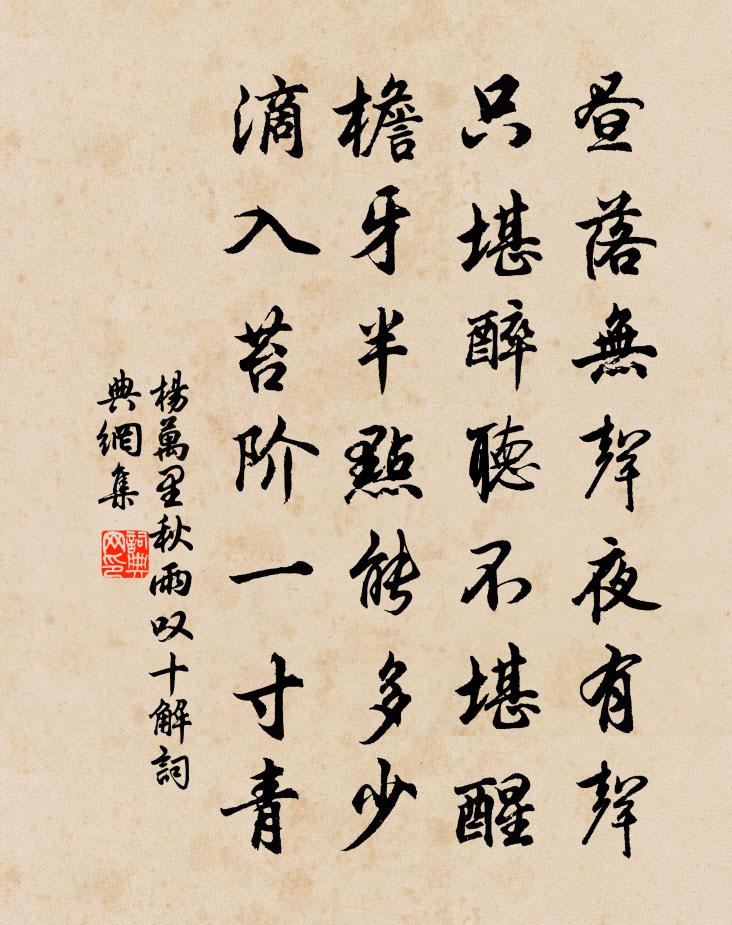 昼落無聲夜有聲
只堪醉聽不堪醒
檐牙半點能多少
滴入苔阶一寸青
楊萬里秋雨叹十解詞
典網集
詞典
网印